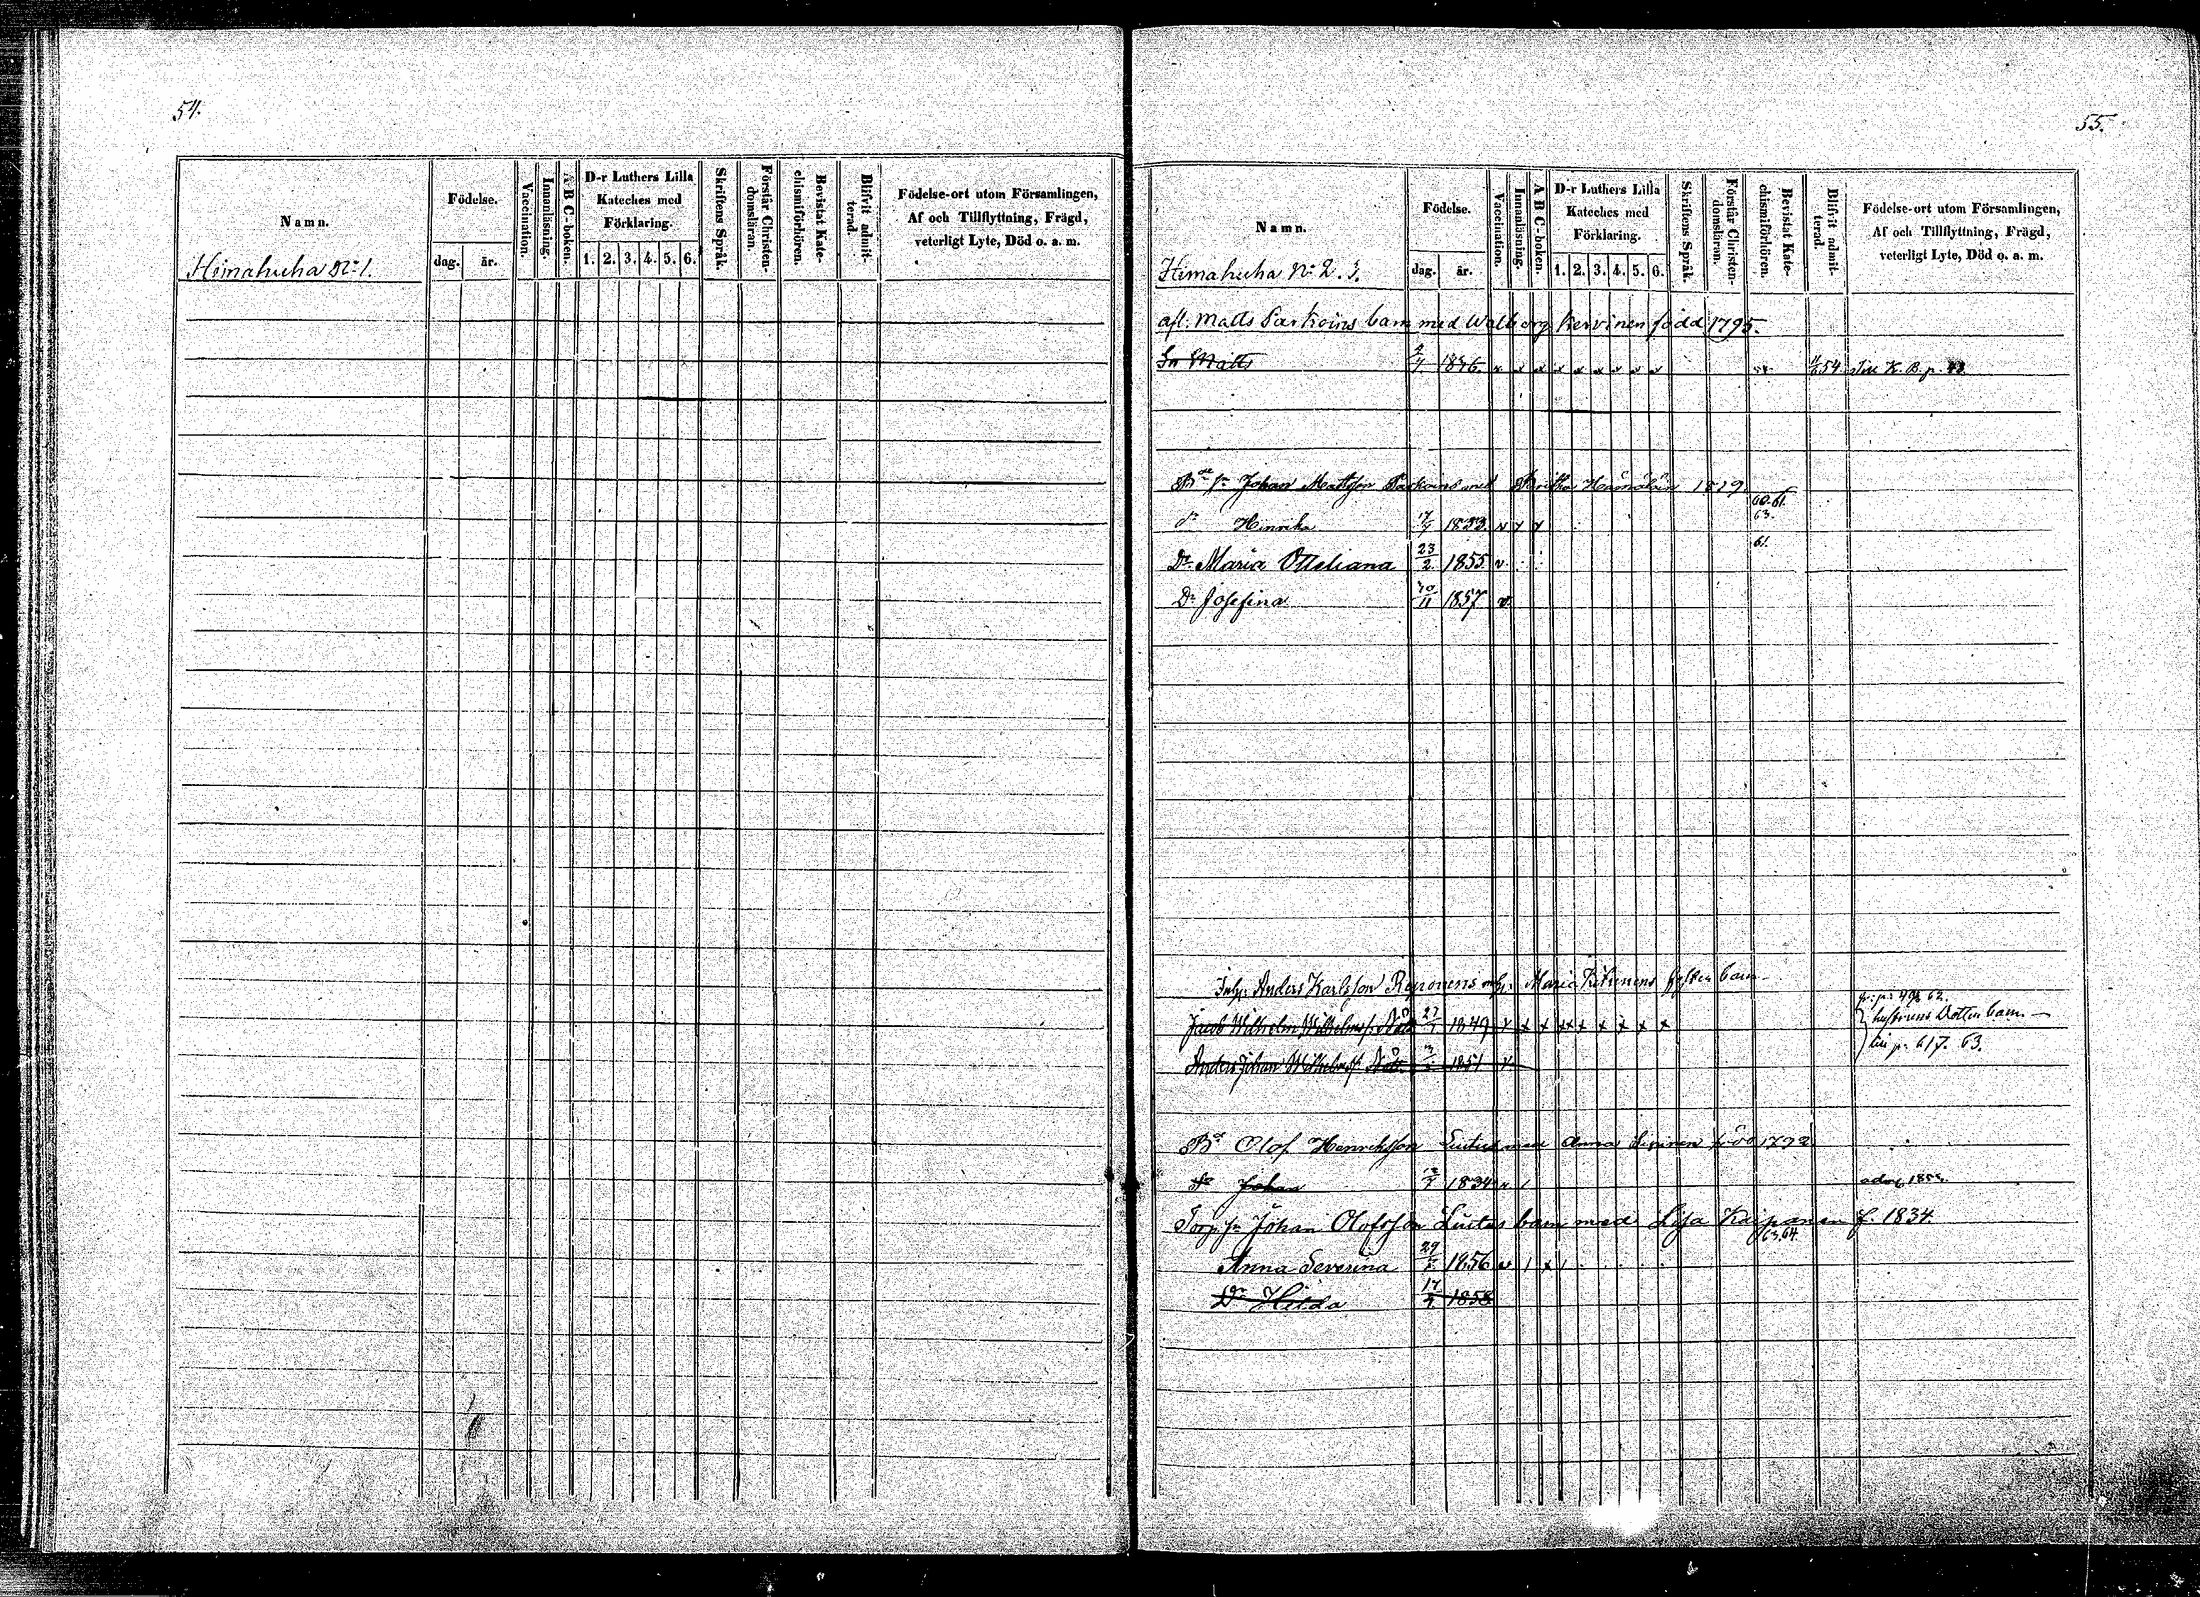 54.
Namn.
Födelse.
dag. år.
Vaccination.
Innanläsning.
A B C-boken.
D-r Luthers Lilla
Kateches med
Förklaring.
1. 2. 3. 4. 5. 6.
Skriftens Språk.
Förstår Christen-
domsläran.
Bevistat Kate-
chismiförhören.
Blifvit admit-
terad.
Födelse-ort utom Församlingen,
Af och Tillflyttning, Frägd,
veterligt Lyte, Död o. a. m.
Himahuha No 1.
55.
Namn.
Födelse.
dag. år.
Vaccination.
Innanläsning.
A B C-boken.
D-r Luthers Lilla
Kateches med
Förklaring.
1. 2. 3. 4. 5. 6.
Skriftens Språk.
Förstår Christen-
domsläran.
Bevistat Kate-
chismiförhören.
Blifvit admit-
terad.
Födelse-ort utom Församlingen,
Af och Tillflyttning, Frägd,
veterligt Lyte, Död o. a. m.
Himahuha No 2. 3.
afl. Matts Parkoins barn med Walborg Kervinen född 1795.
Sn Matts 1836 54 K. B. p.
Johan Mattsson Parkoins med Britha Hämäläin 1819
60.61.
63.
Henrika 17/9 1853. v
61.
Dr Maria Otteliana 23/2 1855 v
Dr Josefina 1857 v
Inhys. Anders Karlsson Reponens Maria barn
62.
Jacob Wilhelm Wilhelmss. 1849 x x x x x x x x x
hustruns Dotter barn.
p. 617. 63.
Anders Johan Wilhelmss. 1851
Bd Olof Henriksson Luitus med Anna född 1792
Sn Johan 1834
Torp. Johan Olofsson Luitus barn med Lisa Kaipanen f. 1834.
63.64.
Anna Severina 29 1856 v
Dr Hilda 17 1858